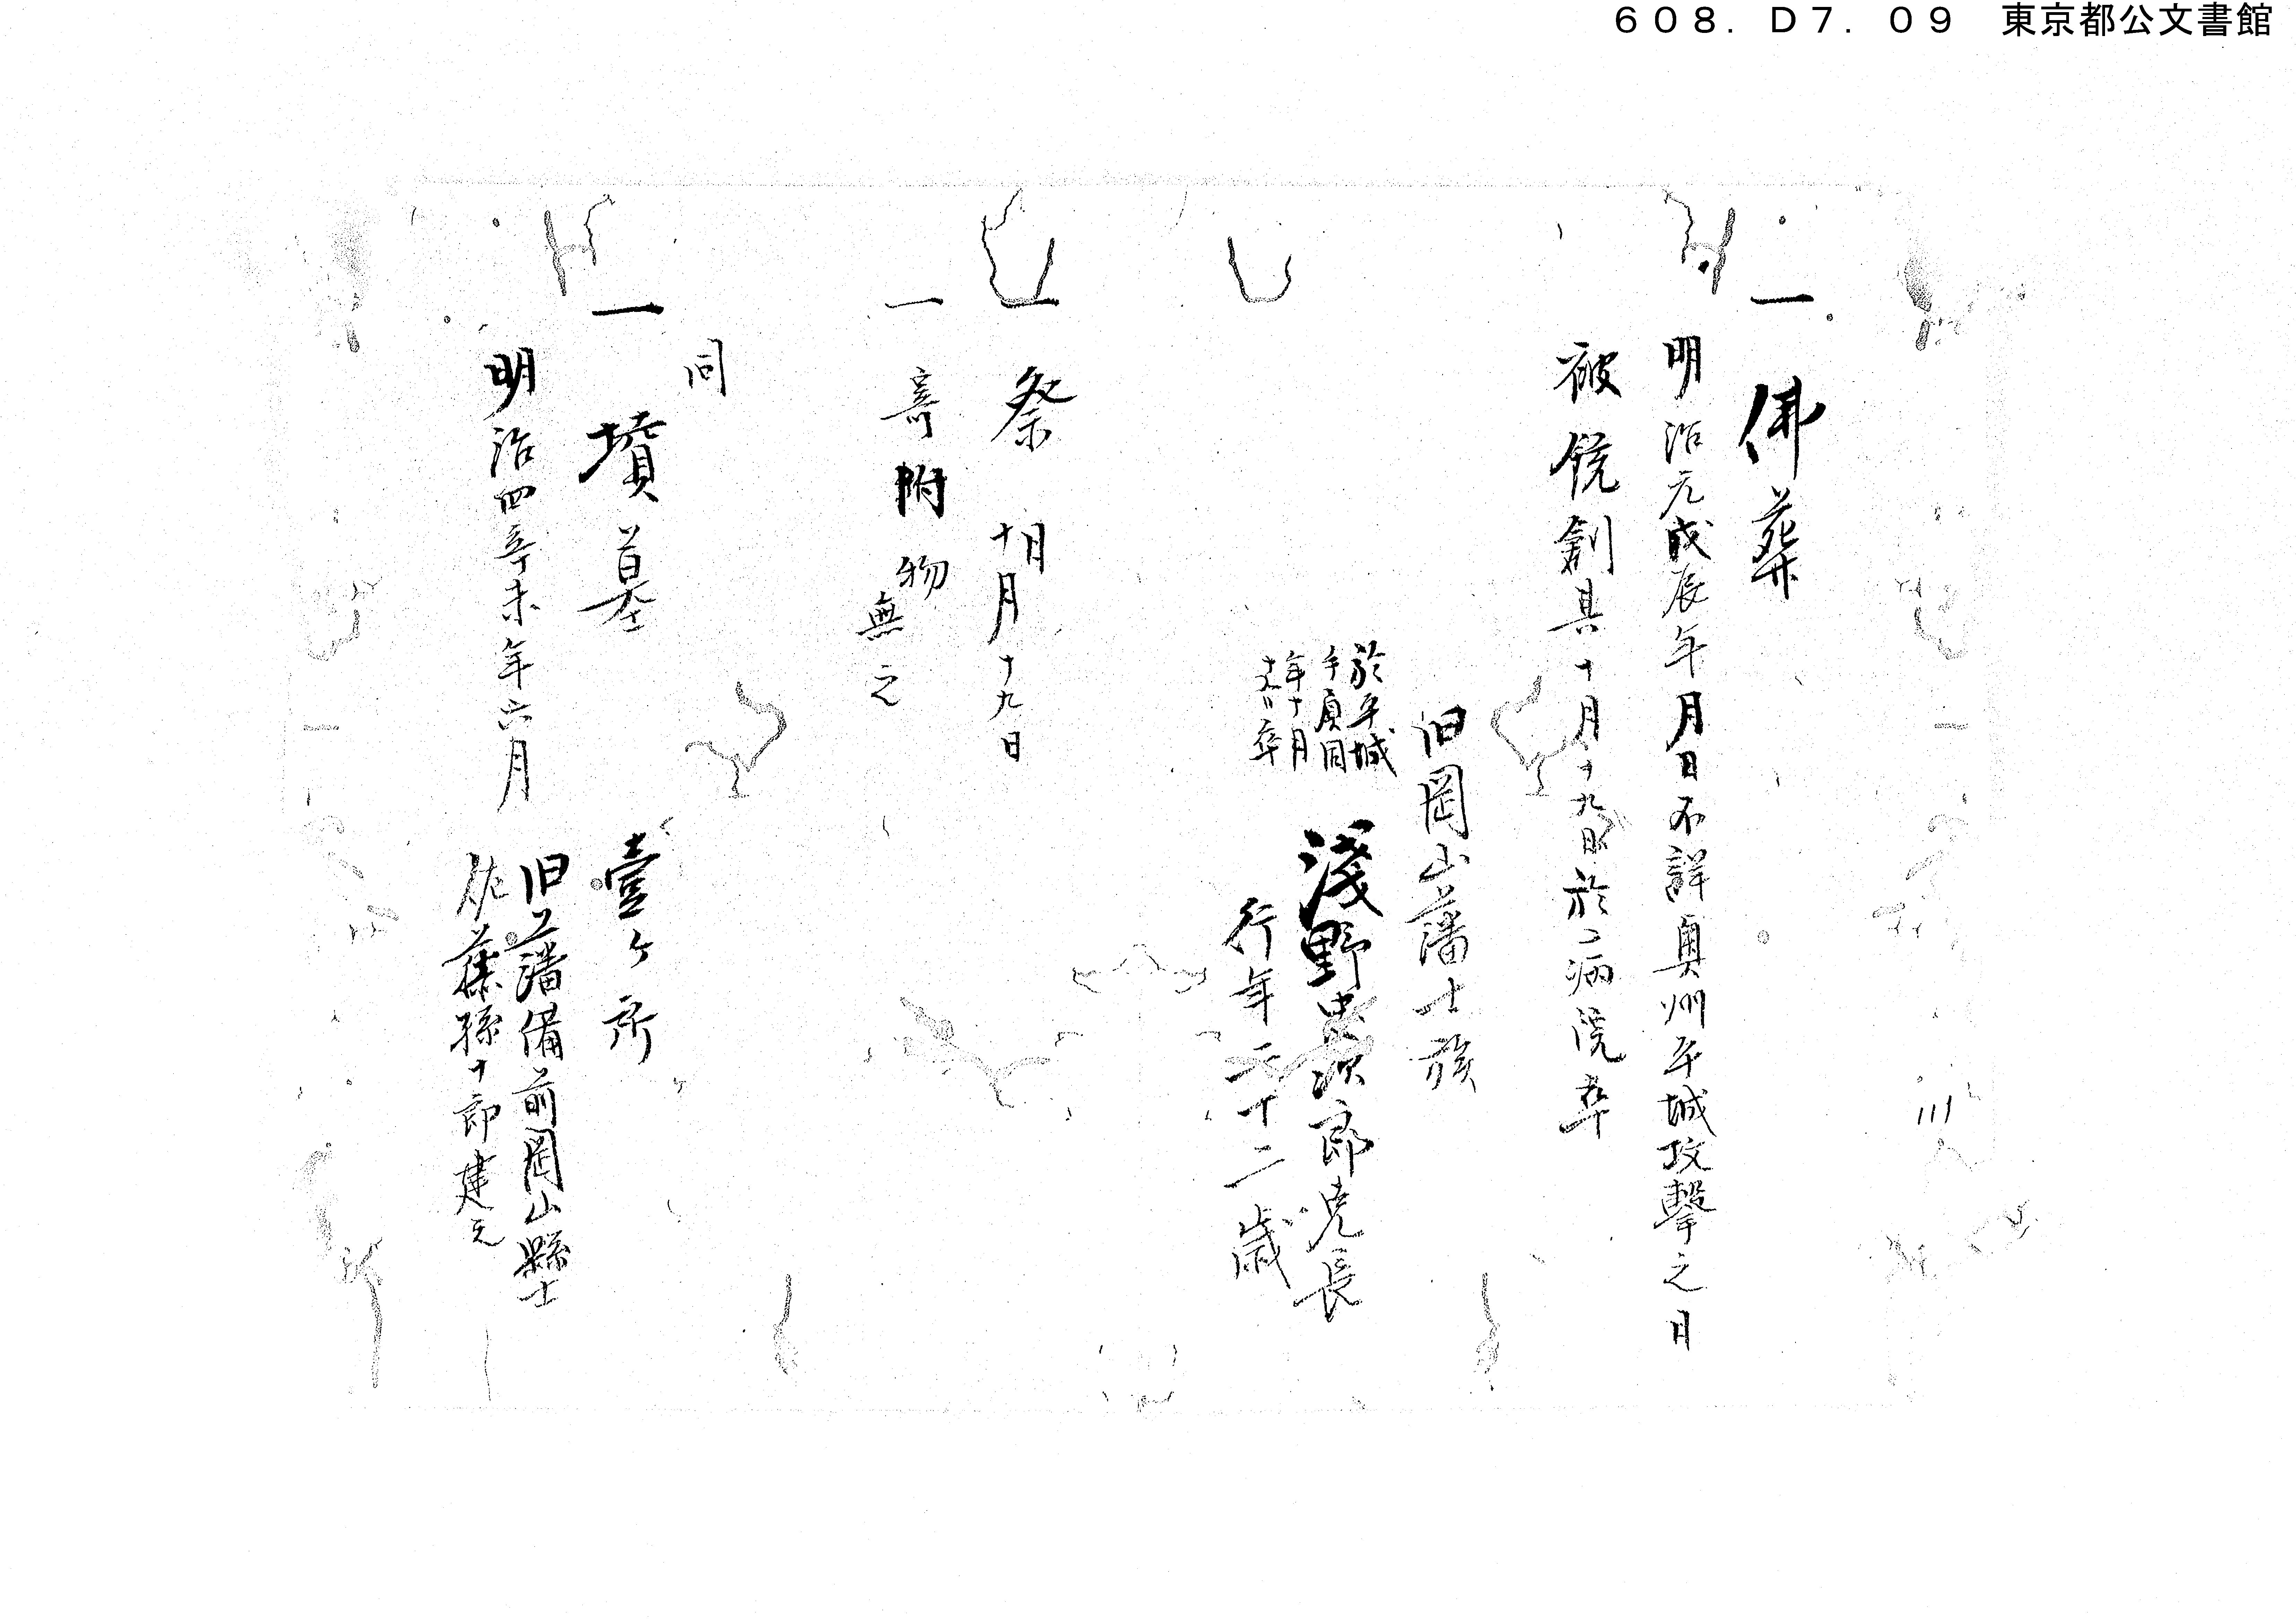 608.D7.09 東京都公文書館
一 佛葬
明治元戊辰年月日不詳奥州平城攻撃之日
被銃創其十月十九日於病院卒
旧岡山藩士族
於平城
手負同
年十月
十九日卒
淺野忠次郎堯長
行年二十二歳
一 祭 十月十九日
一 寄附物無之
同
一 墳墓 壹ヶ所
明治四辛未年六月
旧藩備前岡山縣士
佐藤孫十郎建之